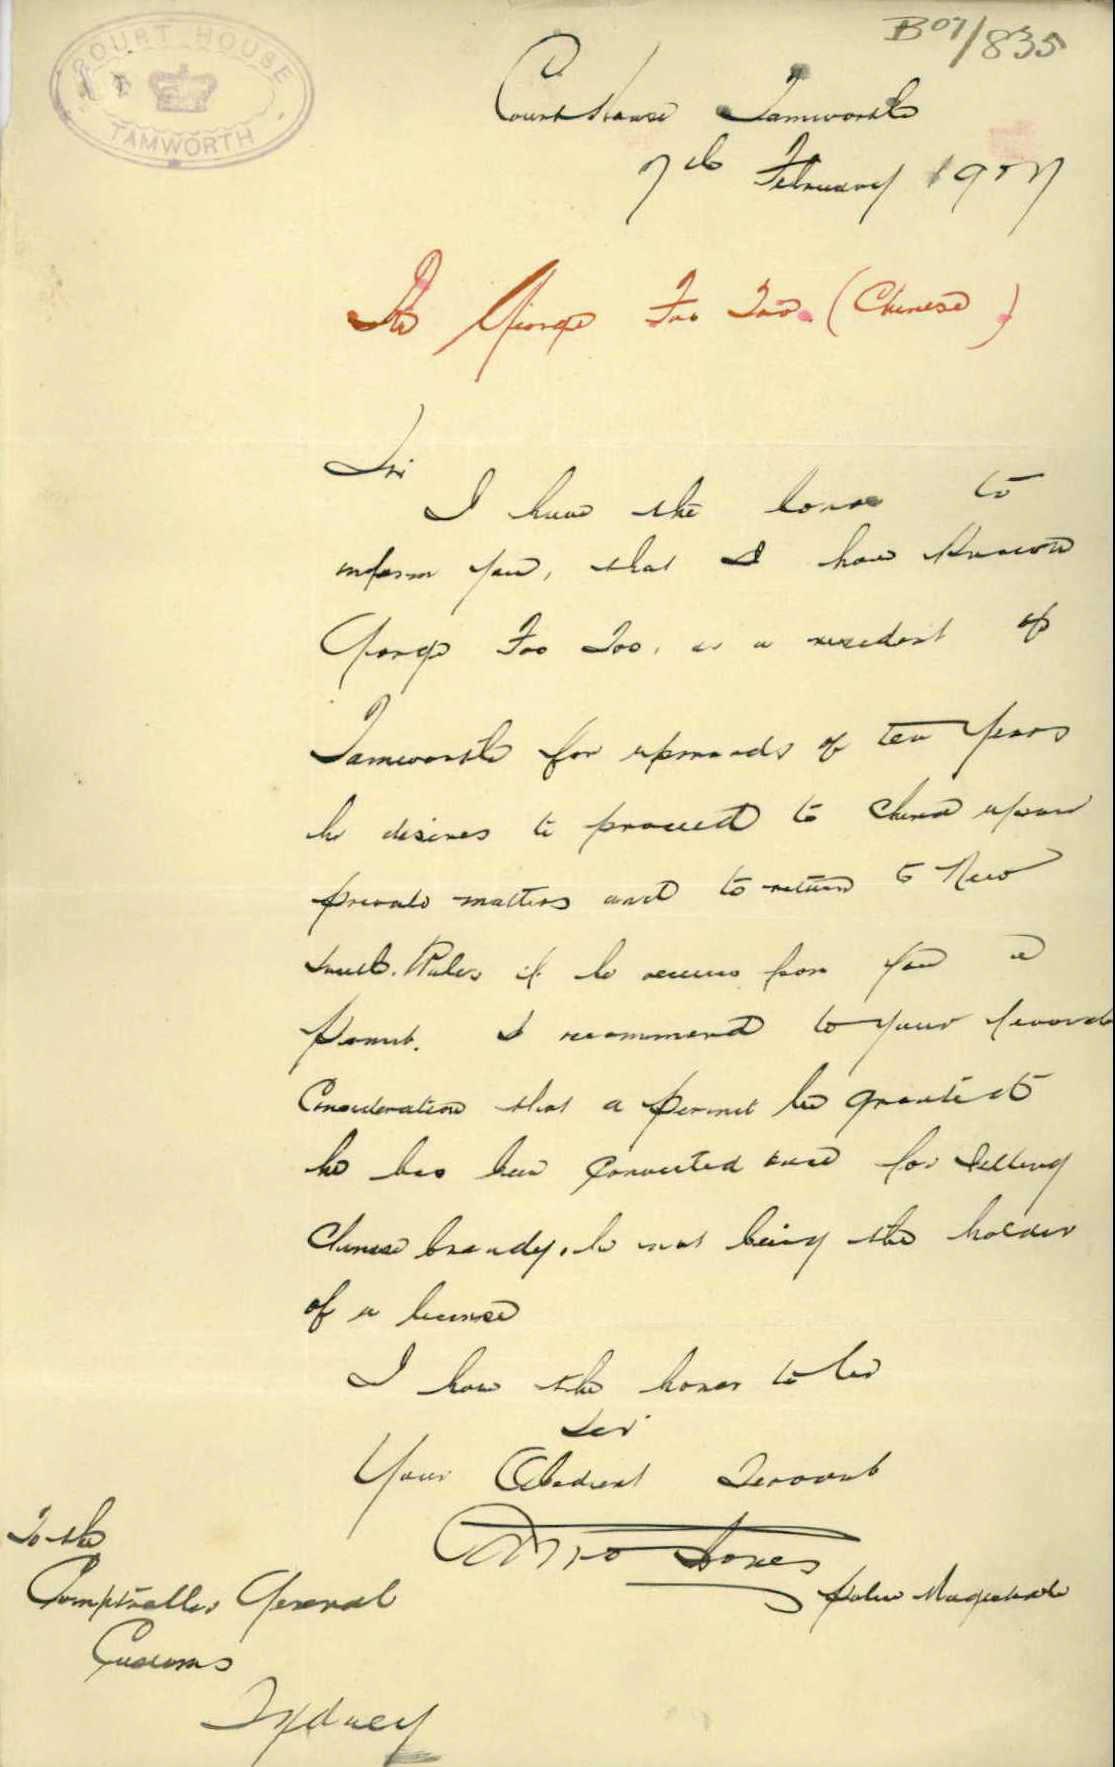 B07/835
COURT HOUSE
TAMWORTH
Court House Tamworth
7th February 1907
Re George Foo Too. (Chinese)
Sir
I have the honor to
inform you, that I have known
George Foo Too, as a resident of
Tamworth for upwards of ten years
he desires to proceed to China upon
private matters and to return to New
South Wales if he receives from you a
Permit. I recommend to your favorable
Consideration that a permit be granted
he has been convicted once for selling
Chinese brandy, he not being the holder
of a license
I have the honor to be
Sir
Your Obedient Servant
Jones
Police Magistrate
To the
Comptroller General
Customs
Sydney